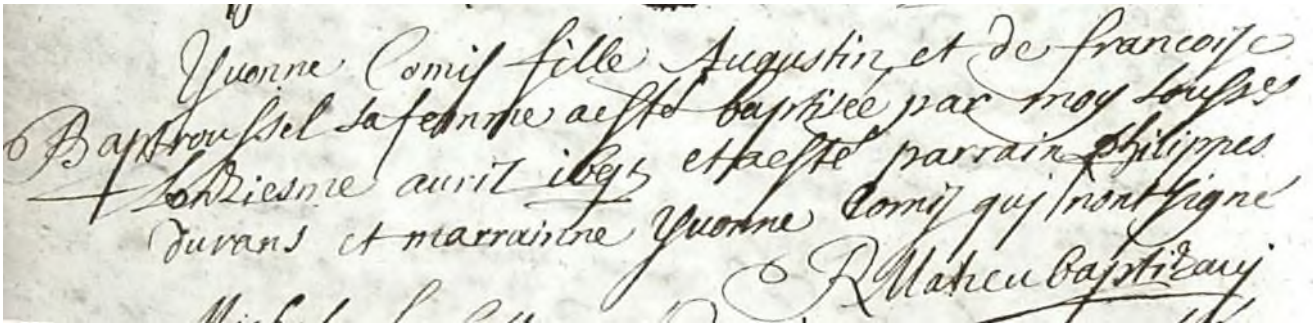 Yvonne Comis fille Augustin et de francoise
Bapt roussel sa femme a esté baptisée par moy soussé
lonziesme auril 1695 et a esté parrain philippes
durans et marrainne yvonne Comis quj nont signé
R Maheu baptizavj